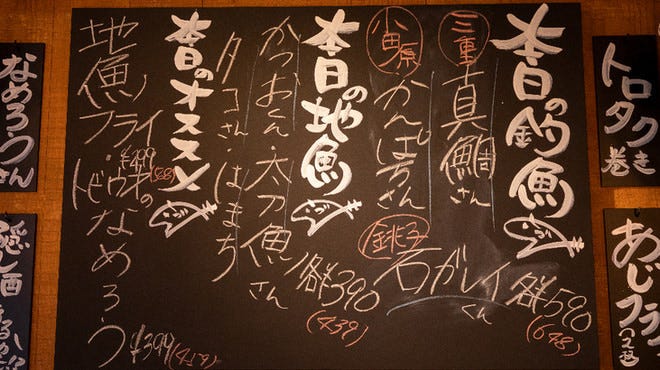 トロタク巻き
あじフライ
本日の釣魚
三重 真鯛さん
小田原 かんぱちさん
銚子 石がレイくん
各¥590
(648)
本日の地魚
かつおくん・太刀魚さん
タコさん・はまち
各¥390
(439)
本日のオススメ
地魚フライ
¥499
・トビウオのなめろう
¥399(439)
なめろうさん
隠し酒